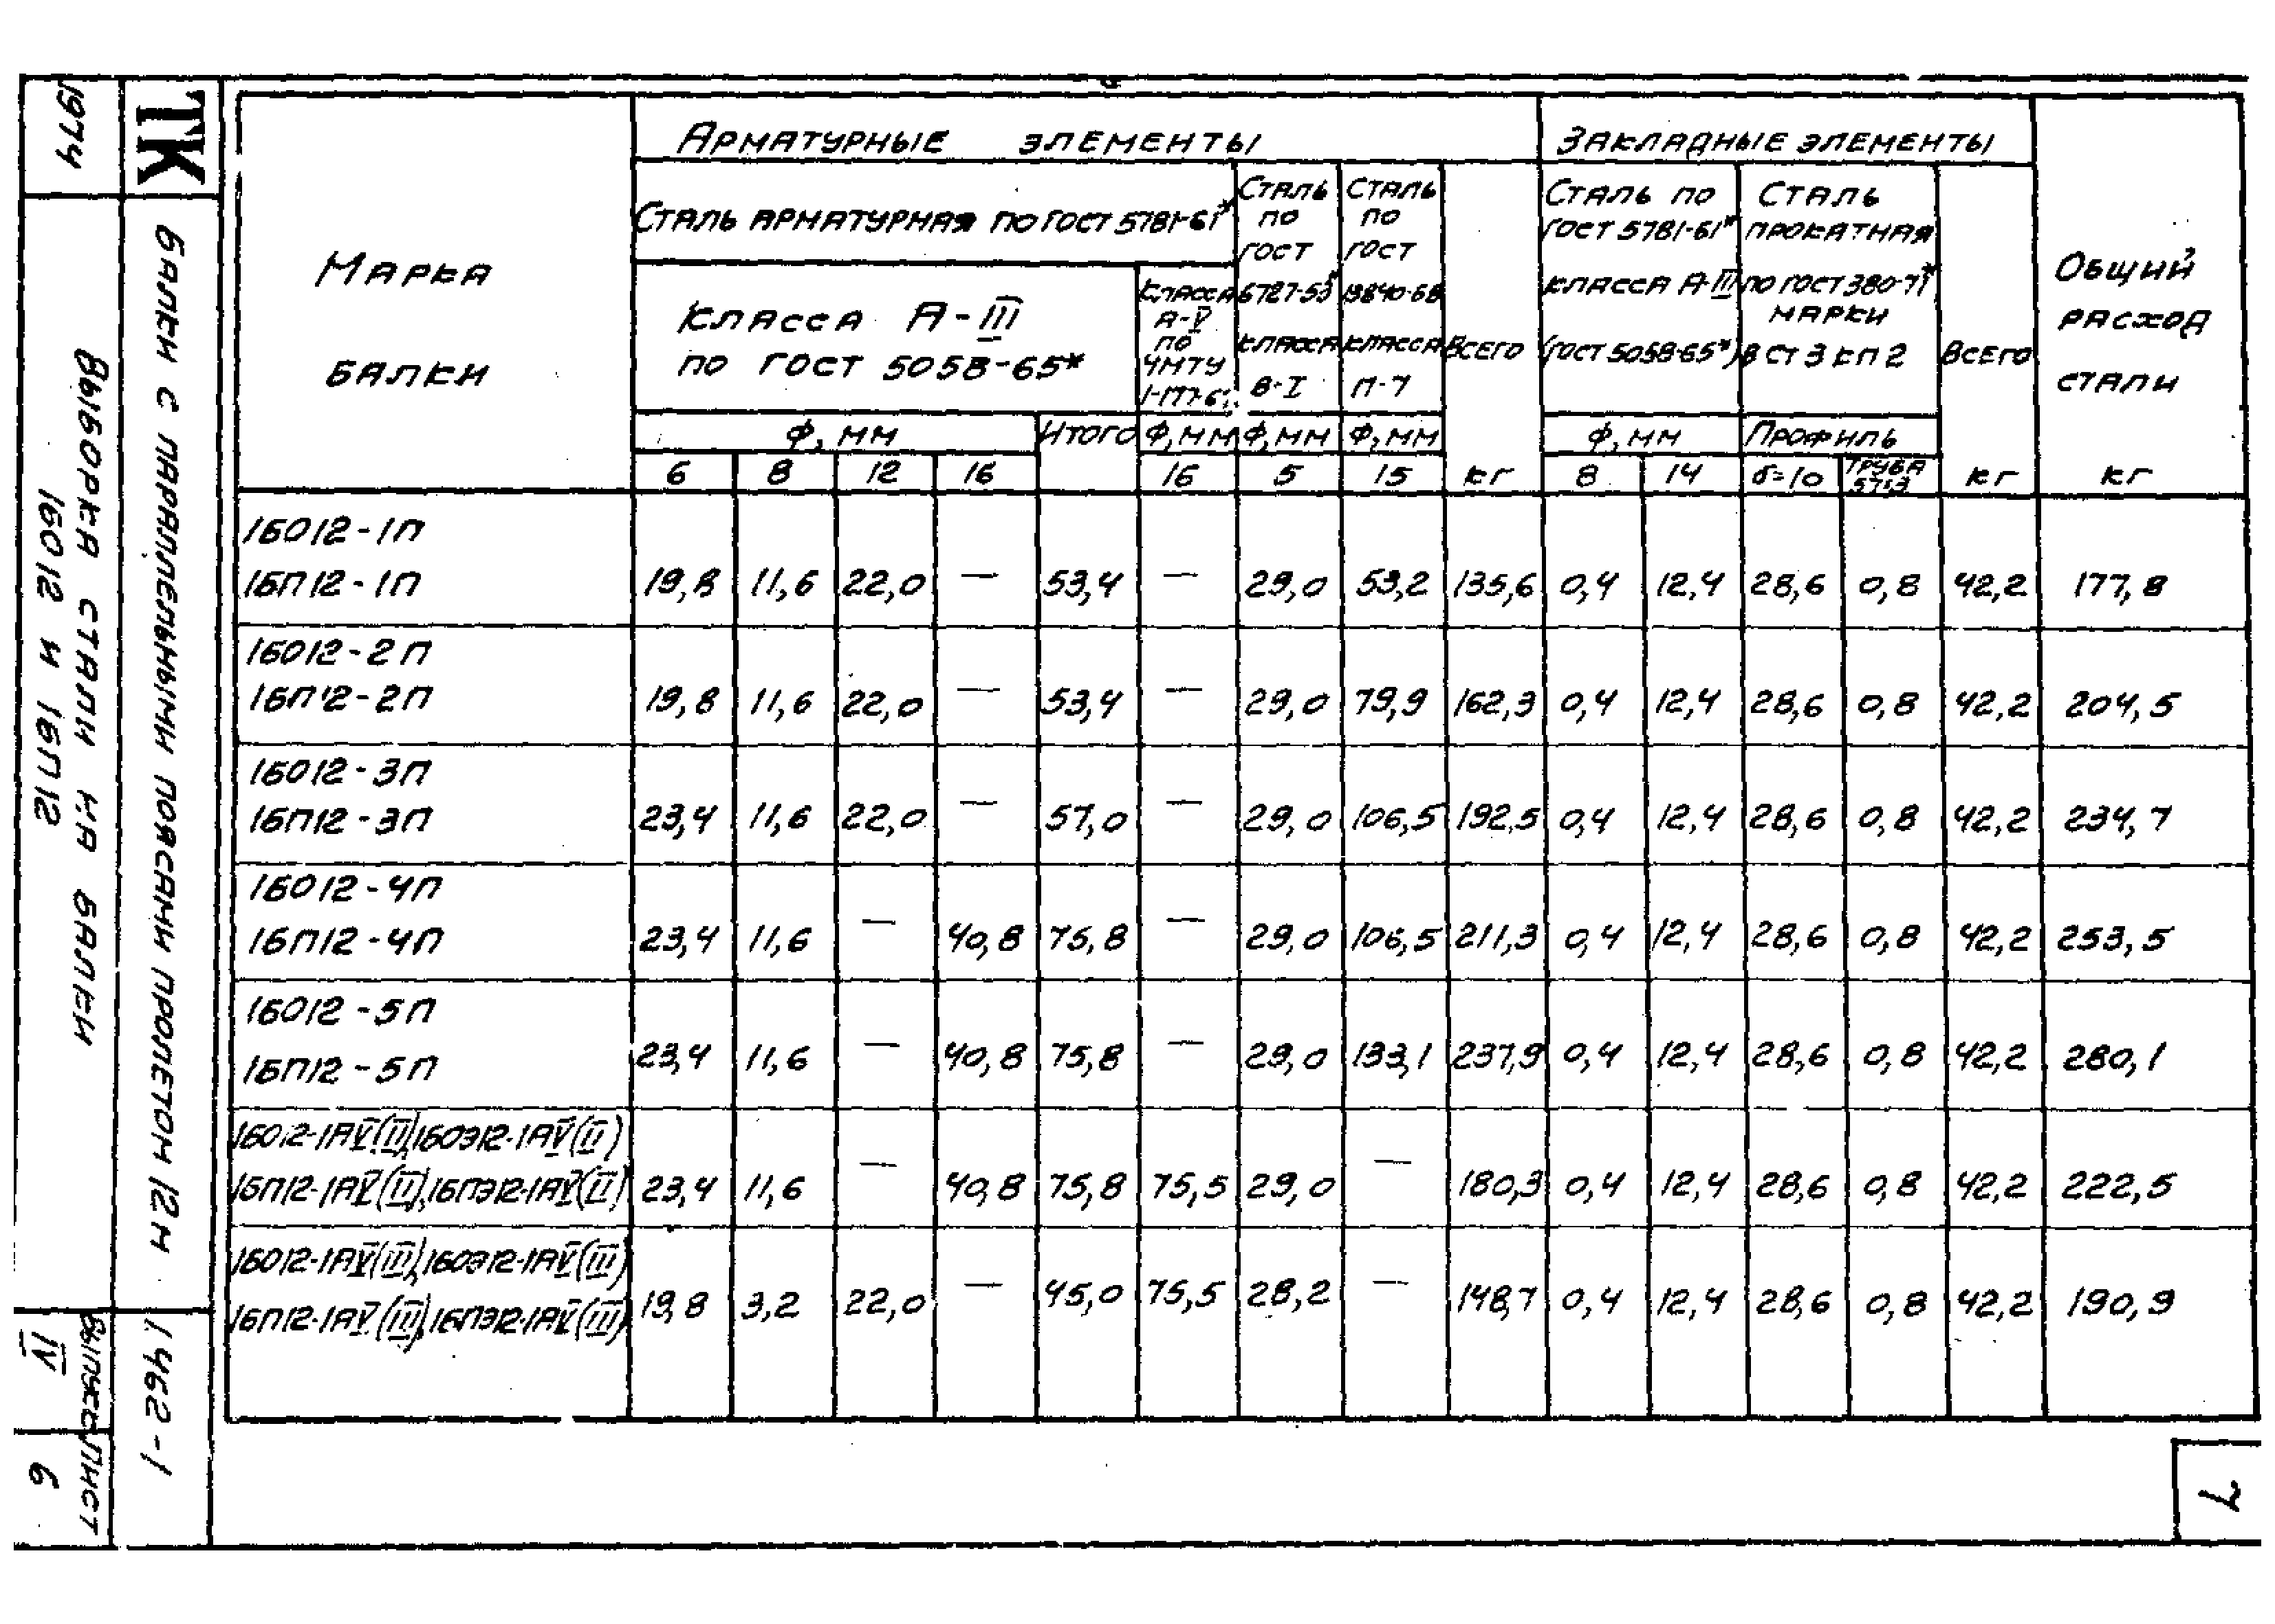 1974
ТК
Балки с параллельными поясами пролетом 12 м
Выборка стали на балки
1БО12 и 1БП12
1.462-1
Выпуск
IV
Лист
6
Марка
балки
Арматурные элементы
Закладные элементы
Общий
расход
стали
кг
Сталь арматурная по ГОСТ 5781-61*
Класса А-III
по ГОСТ 5058-65*
Класса
А-V
по
ЧМТУ
Сталь
по
ГОСТ
6727-53*
класса
В-I
Сталь
по
ГОСТ
13840-68
класса
П-7
Всего
кг
Сталь по
ГОСТ 5781-61*
класса А-III
(ГОСТ 5058-65*)
Сталь
прокатная
по ГОСТ 380-71*
марки
В Ст 3 кп 2
Всего
кг
Ф, мм
Итого
Ф, мм
Ф, мм
Ф, мм
Ф, мм
Профиль
6 8 12 16 16 5 15 8 14 δ=10 Труба
1БО12-1П
1БП12-1П 19,8 11,6 22,0 — 53,4 — 29,0 53,2 135,6 0,4 12,4 28,6 0,8 42,2 177,8
1БО12-2П
1БП12-2П 19,8 11,6 22,0 — 53,4 — 29,0 79,9 162,3 0,4 12,4 28,6 0,8 42,2 204,5
1БО12-3П
1БП12-3П 23,4 11,6 22,0 — 57,0 — 29,0 106,5 192,5 0,4 12,4 28,6 0,8 42,2 234,7
1БО12-4П
1БП12-4П 23,4 11,6 — 40,8 75,8 — 29,0 106,5 211,3 0,4 12,4 28,6 0,8 42,2 253,5
1БО12-5П
1БП12-5П 23,4 11,6 — 40,8 75,8 — 29,0 133,1 237,9 0,4 12,4 28,6 0,8 42,2 280,1
1БО12-1АV(II), 1БОЭ12-1АV(II)
1БП12-1АV(II), 1БПЭ12-1АV(II) 23,4 11,6 — 40,8 75,8 75,5 29,0 — 180,3 0,4 12,4 28,6 0,8 42,2 222,5
1БО12-1АV(III), 1БОЭ12-1АV(III)
1БП12-1АV(III), 1БПЭ12-1АV(III) 19,8 3,2 22,0 — 45,0 75,5 28,2 — 148,7 0,4 12,4 28,6 0,8 42,2 190,9
7